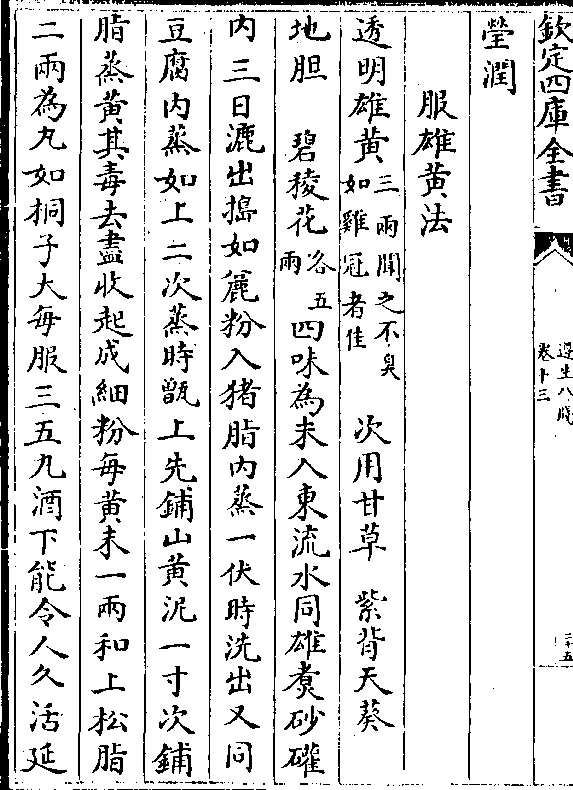 欽定四庫全書
遵生八牋
卷十三
二十五
瑩潤
服雄黃法
透明雄黃三兩聞之不臭如雞冠者佳 次用甘草 紫背天葵
地胆 碧稜花各五兩 四味為末入東流水同雄煑砂礶
内三日漉出搗如麄粉入猪脂内蒸一伏時洗出又同
豆腐内蒸如上二次蒸時甑上先鋪山黃泥一寸次鋪
脂蒸黃其毒去盡收起成細粉每黃末一兩和上松脂
二兩為丸如桐子大每服三五丸酒下能令人久活延